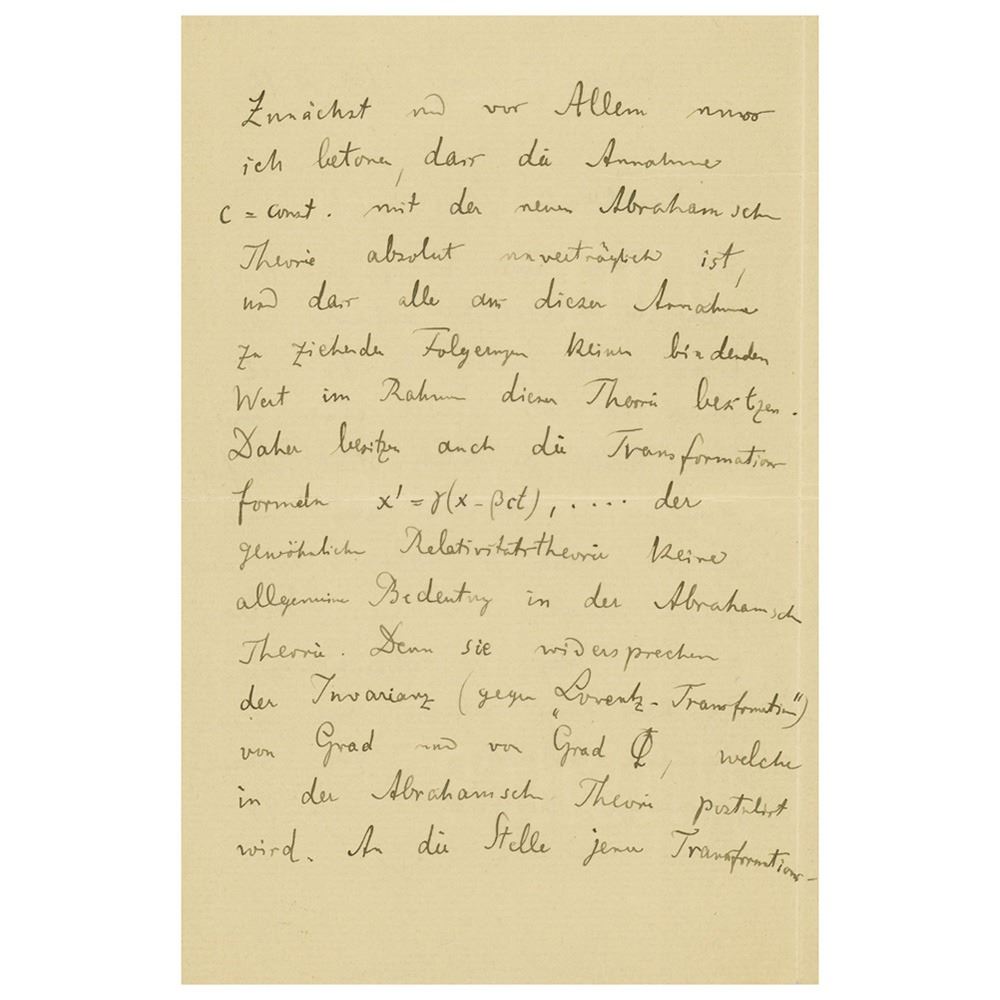 Zunächst und vor Allem muss
ich betonen, dass die Annahme
c = const. mit der neuen Abrahamschen
Theorie absolut unverträglich ist,
und dass alle aus dieser Annahme
zu ziehenden Folgerungen keinen bindenden
Wert im Rahmen dieser Theorie besitzen.
Daher besitzen auch die Transformations
formeln x' = γ(x - βct), .... der
gewöhnlichen Relativitätstheorie keine
allgemeine Bedeutung in der Abrahamschen
Theorie. Denn sie widersprechen
der Invarianz (gegen „Lorentz-Transformation")
von Grad und von Grad, welche
in der Abrahamschen Theorie postuliert
wird. An die Stelle jener Transformations-